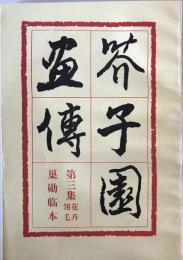 芥子園
畫傳
第三集 花卉 翎毛
巢勛临本